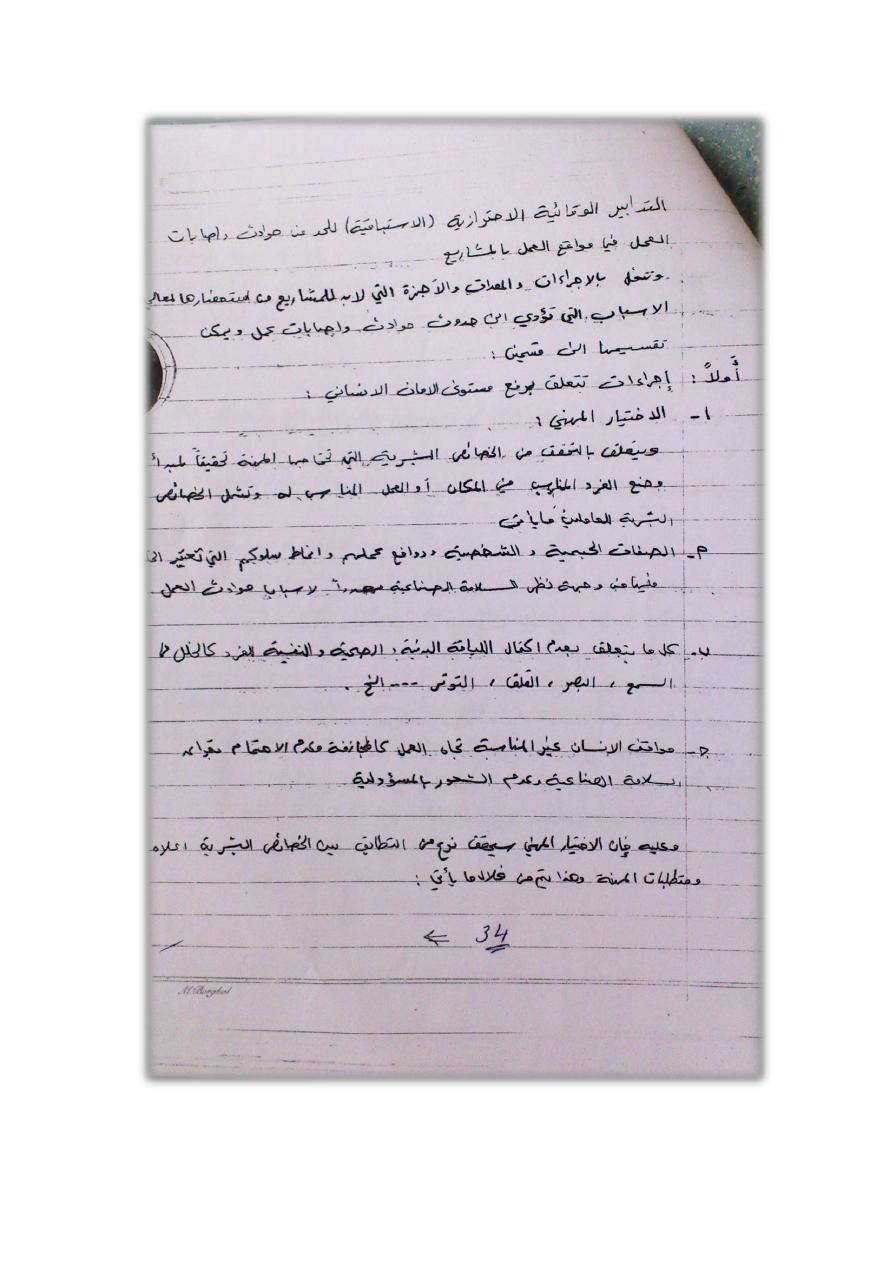 التدابير الوقائية الاحترازية (الاستباقية) للحد من حوادث واصابات
العمل في مواقع العمل بالمشاريع
وتتمثل بالاجراءات والمعدات والأجهزة التي لابد للمشاريع من استحضارها
الاسباب التي تؤدي الى حدوث حوادث واصابات عمل ويمكن
تقسيمها الى قسمين :
أولاً : إجراءات تتعلق برفع مستوى الامان الانساني :
١- الاختيار المهني :
ويتعلق بالتحقق من الخصائص البشرية التي تحتاجها المهنة تحقيقاً لمبدأ
وضع الفرد المناسب في المكان أو العمل المناسب له وتشمل الخصائص
البشرية للعاملين ما يأتي
م- الصفات الجسمية والشخصية ودوافع عملهم وانماط سلوكهم التي تعتبر
من وجهة نظر السلامة الصناعية مصدراً لاسباب حوادث العمل
ب- كل ما يتعلق بعدم اكتمال اللياقة البدنية والصحية والنفسية للفرد كالخلل في
السمع ، البصر ، القلق ، التوتر --- الخ .
ج- مواقف الإنسان غير المناسبة تجاه العمل كالمجازفة وعدم الاهتمام بقواعد
السلامة الصناعية وعدم الشعور بالمسؤولية
وعليه فإن الاختيار المهني سيحقق نوع من التطابق بين الخصائص البشرية اعلاه
ومتطلبات المهنة وهذا يتم من خلال ما يأتي :
34 ←
M.Borghol